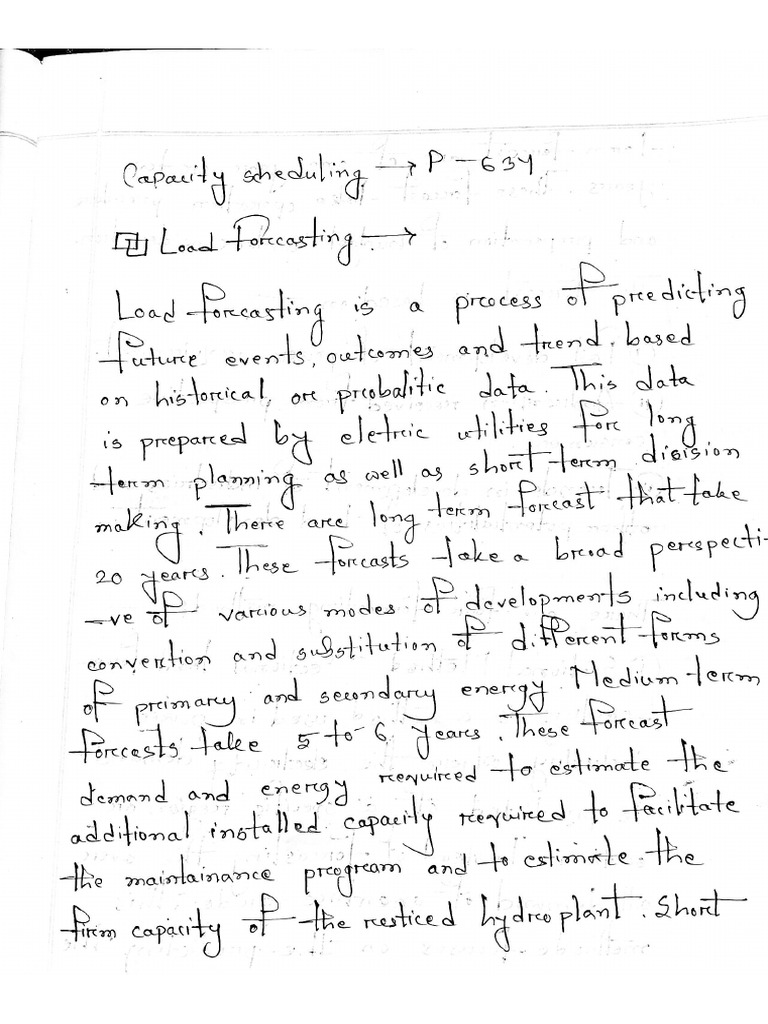 Capacity scheduling → P - 634
Load Forecasting →
Load forecasting is a process of predicting
future events, outcomes and trend, based
on historical, or probalitic data. This data
is prepared by eletric utilities for long
term planning as well as short term disision
making. There are long term forecast that take
20 years. These forecasts take a broad perspecti-
-ve of various modes of developments including
convertion and substitution of different forms
of primary and secondary energy Medium term
forecasts take 5 to 6 years. These forecast
demand and energy required to estimate the
additional installed capacity required to facilitate
the maintainance program and to estimate the
firm capacity of the hydro plant. Short